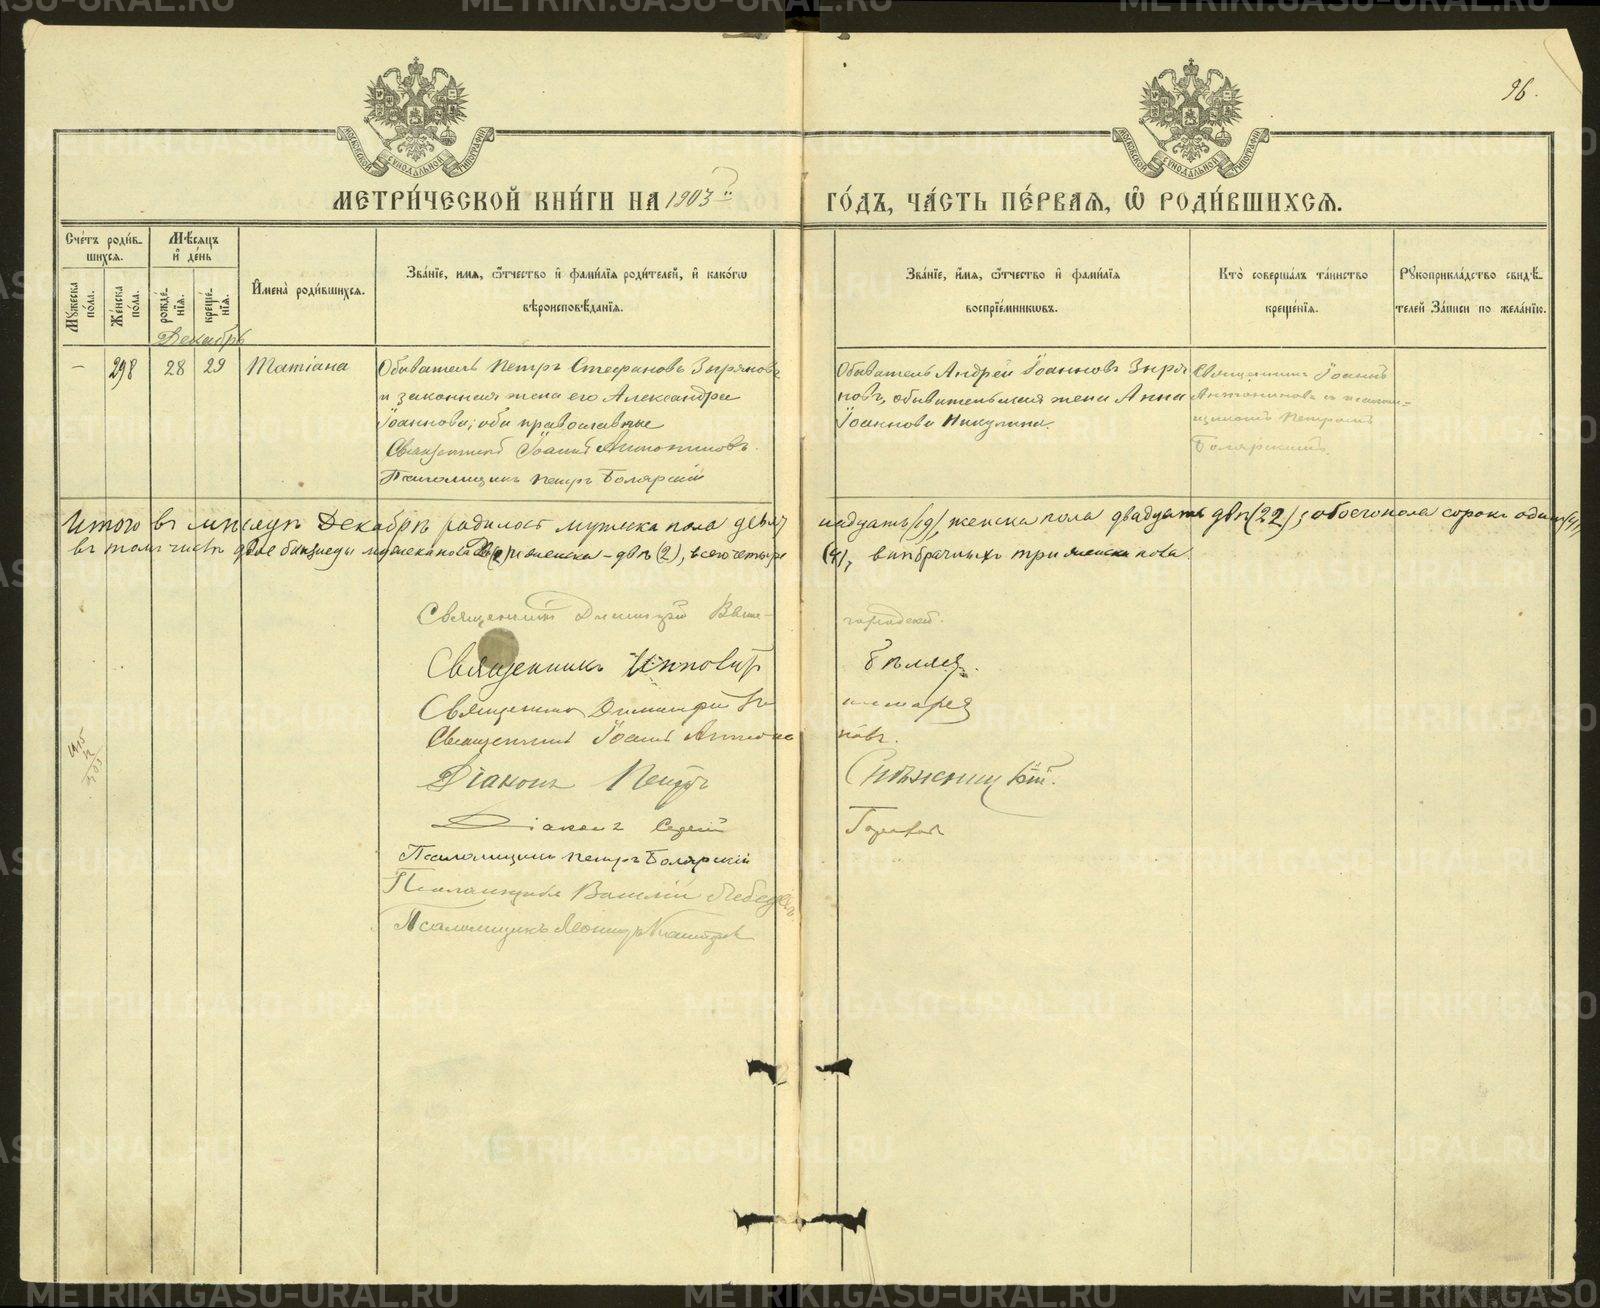 96.
МОСКОВСКОЙ СѴНОДАЛЬНОЙ ТИПОГРАФІИ
МОСКОВСКОЙ СѴНОДАЛЬНОЙ ТИПОГРАФІИ
МЕТРИ́ЧЕСКОЙ КНИ́ГИ НА 1903й ГО́ДЪ, ЧА́СТЬ ПЕ́РВАѦ, Ѽ РОДИ́ВШИХСѦ.
Сче́тъ роди́вшихсѧ.
Мꙋ́жеска по́ла.
Же́нска по́ла.
Мѣ́сѧцъ и҆ де́нь
рожде́нїѧ.
креще́нїѧ.
И҆мена̀ роди́вшихсѧ.
Зва́нїе, и҆мѧ, ѻ҆́тчество и҆ фами́лїѧ роди́телей, и҆ како́гѡ
вѣроисповѣ́данїѧ.
Зва́нїе, и҆́мѧ, ѻ҆́тчество и҆ фами́лїѧ
воспрїе́мникѡвъ.
Кто̀ соверша́лъ та́инство
креще́нїѧ.
Рꙋкоприкла́дство свидѣ́
телей за́писи по жела́нїю.
Декабрь
— 298 28 29 Татіана
Обыватель Петръ Стефановъ Зыряновъ
и законная жена его Александра
Іоаннова; оба православные
Священникъ Іоаннъ Антониновъ.
Псаломщикъ Петръ Боярскій
Обыватель Андрей Іоанновъ Зыря
новъ, обывательская жена Анна
Іоаннова Никулина.
Священникъ Іоаннъ
Антониновъ съ псалом-
щикомъ Петромъ
Боярскимъ.
Итого въ мѣсяцѣ Декабрѣ родилось мужска пола девят надцать (19) женска пола двадцать двѣ (22), обоего пола сорокъ одинъ (41)
въ томъ числѣ двое близнецы мужеска пола два (2) и женска – двѣ (2), всего четыре (4), внѣбрачныхъ три женска пола.
Священникъ Димитрій Выше- городскій.
Священникъ Ипполитъ Бѣляев.
Священникъ Димитрій
Священникъ Іоаннъ Антони новъ.
Діаконъ Петръ Снѣжницкій.
Діаконъ Сергій
Псаломщикъ Петръ Боярскій
Псаломщикъ Василій Лебедевъ
Псаломщикъ Леонидъ
METRIKI.GASO-URAL.RU